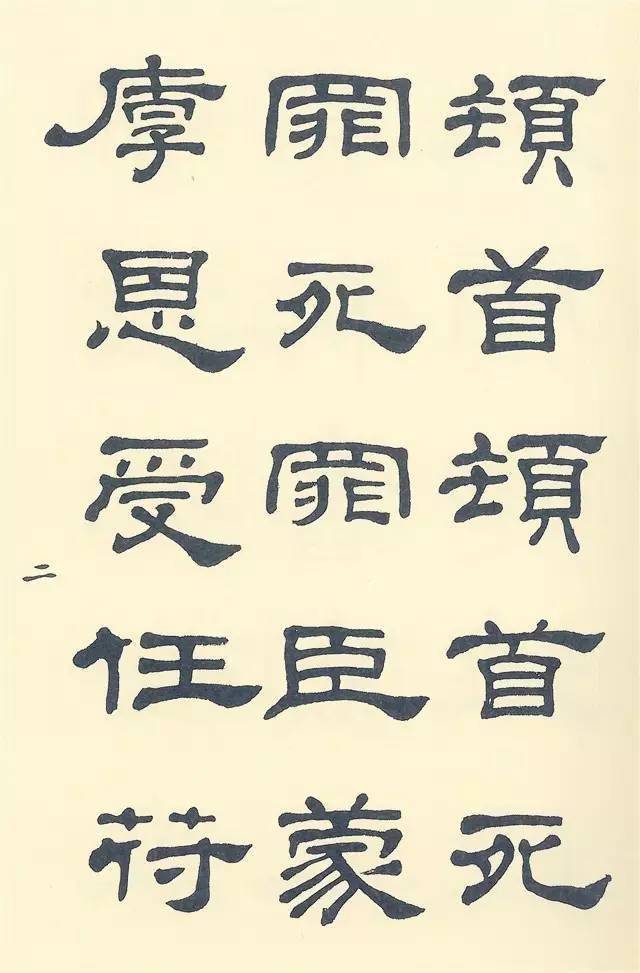 頓首頓首死
罪死罪臣蒙
厚恩受任符
二